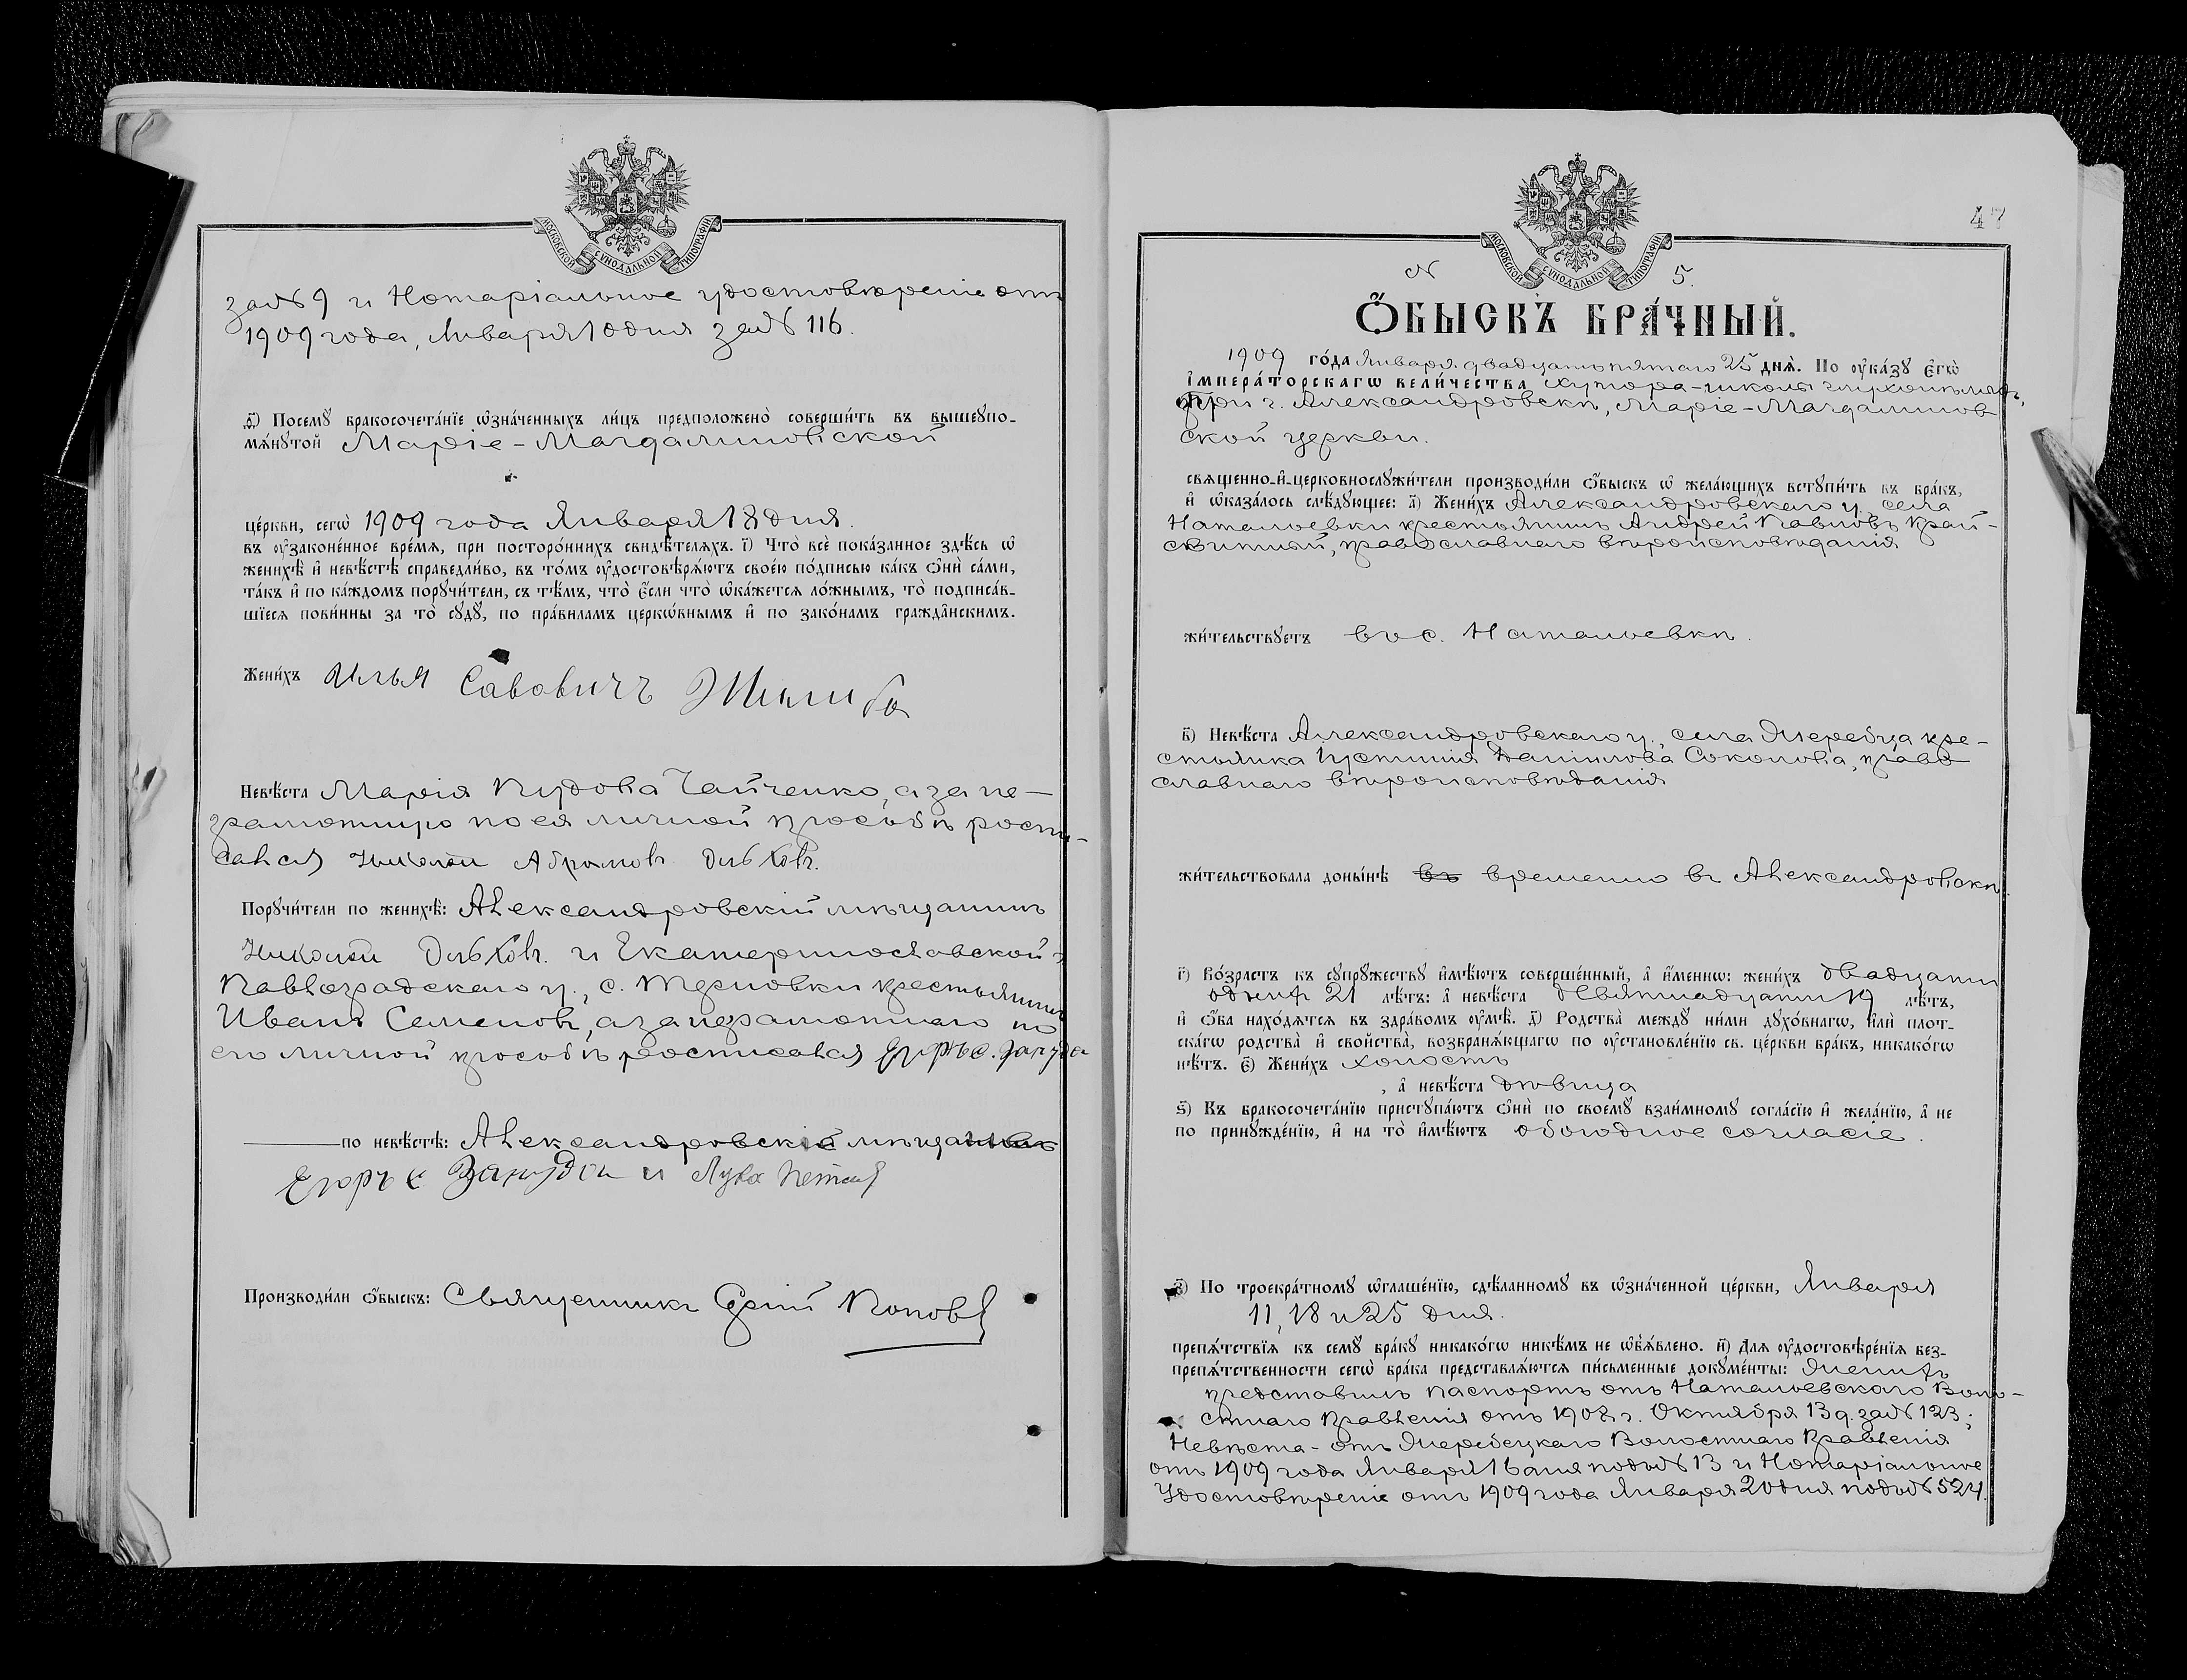 МОСКОВСКОЙ СУНОДАЛЬНОЙ ТИПОГРАФІИ
за № 9 и Нотаріальное удостовѣреніе отъ
1909 года, Января 10 дня за № 116.
Ѳ҃) Посемꙋ бракосочета́нїе ѡ҆зна́ченныхъ ли́цъ предположено̀ соверши́ть въ вышеꙋпо-
мѧ́нꙋтой Маріе-Магдалиновской
це́ркви, сегѡ̀ 1909 года Января 18 дня.
въ ᲂу҆законе́нное вре́мѧ, при посторо́ннихъ свидѣ́телѧхъ. і҃) Что̀ всѐ пока́занное здѣ́сь ѡ҆
женихѣ̀ и҆ невѣ́стѣ справедли́во, въ то́мъ ᲂу҆достовѣрѧ́ютъ свое́ю по́дписью ка́къ ѻ҆нѝ са́ми,
та́къ и҆ по ка́ждомъ порꙋчи́тели, съ тѣ́мъ, что̀ є҆́сли что̀ ѡ҆ка́жетсѧ ло́жнымъ, то̀ подписа́в-
шїесѧ пови́нны за то̀ сꙋдꙋ̀, по пра́виламъ церкѡ́внымъ и҆ по зако́намъ гражда̑нскимъ.
Жени́хъ Илья Савовичъ
Невѣ́ста Марія Чайченко, а за не-
грамотную по ея личной просьбѣ роспи-
сался Николай Абрамовъ
Порꙋчи́тели по женихѣ̀: Александровскій мѣщанинъ
Николай и Екатеринославской г.
Павлоградскаго у., с. Терновки крестьянинъ
Иванъ Семеновъ, а за неграмотнаго по
его личной просьбѣ росписался Егоръ С.
по невѣ́стѣ: Александровскіе мѣщане
Егоръ С. и Лука
Производи́ли ѻ҆́быскъ: Священникъ Поповъ
47
МОСКОВСКОЙ СУНОДАЛЬНОЙ ТИПОГРАФІИ
№ 5.
Ѻ҆́БЫСКЪ БРА́ЧНЫЙ.
1909 го́да Января двадцать пятаго 25 днѧ̀. По ᲂу҆ка́зꙋ є҆гѡ̀
і҆мпера́торскагѡ вели́чества хутора-школы глухонѣмыхъ,
при г. Александровскѣ, Маріе-Магдалинов
ской церкви.
свѧщенно-и҆-церковнослꙋжи́тели производи́ли ѻ҆́быскъ ѡ҆ жела́ющихъ встꙋпи́ть въ бра́къ,
и҆ ѡ҆каза́лось слѣ́дꙋющее: а҃) Жени́хъ Александровскаго у., села
Натальевки крестьянинъ Андрей Павловъ Край-
свитный, православнаго вѣроисповѣданія
жи́тельствꙋетъ въ с. Натальевкѣ.
в҃) Невѣ́ста Александровскаго у., села Жеребца кре-
стьянка Іустинія Даніилова Соколова, право
славнаго вѣроисповѣданія
жи́тельствовала доны́нѣ въ временно въ Александровскѣ.
г҃) Во́зрастъ къ сꙋпрꙋ́жествꙋ и҆мѣ́ютъ соверше́нный, а҆ и҆́меннѡ: жени́хъ двадцати
одинъ 21 лѣ́тъ: а҆ невѣ́ста девятнадцати 19 лѣ́тъ,
и҆ ѻ҆́ба нахо́дѧтсѧ въ здра́вомъ ᲂу҆мѣ̀. д҃) Родства̀ междꙋ ни́ми дꙋхо́внагѡ, и҆лѝ плот-
ска́гѡ родства̀ и҆ сво́йства, возбранѧ́ющагѡ по ᲂу҆становле́нїю св. це́ркви бра́къ, никако́гѡ
нѣ́тъ. є҃) Жени́хъ холостъ
, а҆ невѣ́ста дѣвица
ѕ҃) Къ бракосочета́нїю пристꙋпа́ютъ ѻ҆нѝ по своемꙋ̀ взаи́мномꙋ согла́сїю и҆ жела́нїю, а҆ не
по принꙋжде́нїю, и҆ на то̀ и҆мѣ́ютъ обоюдное согласіе.
з҃) По троекра́тномꙋ ѡ҆глаше́нїю, сдѣ́ланномꙋ въ ѡ҆зна́ченной це́ркви, Января
11, 18 и 25 дня.
препѧ́тствїѧ къ семꙋ̀ бра́кꙋ никако́гѡ никѣ́мъ не ѡ҆бъѧ́влено. и҃) Длѧ ᲂу҆достовѣре́нїѧ без-
препѧ́тственности сегѡ̀ бра́ка представлѧ́ютсѧ пи́сьменные докꙋме́нты: Женихъ
представилъ паспортъ отъ Натальевскаго Воло-
стнаго Правленія отъ 1908 г. Октября 13 д. за № 123;
Невѣста - отъ Жеребецкаго Волостнаго Правленія
отъ 1909 года Января 16 дня подъ № 13 и Нотаріальное
Удостовѣреніе отъ 1909 года Января 20 дня подъ № 524.